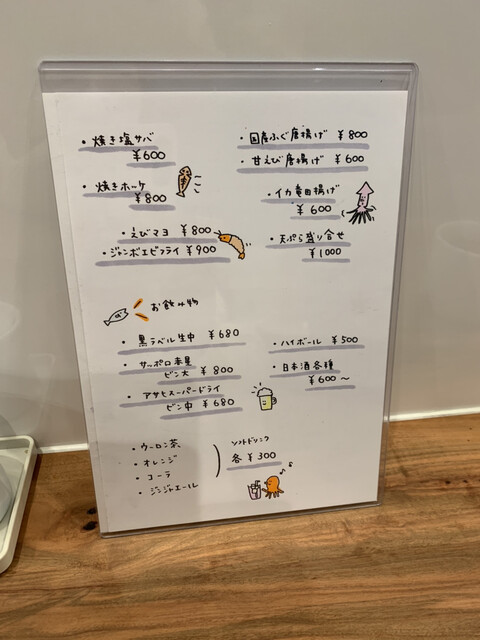 ・焼き塩サバ
￥600
・焼きホッケ
￥800
・えびマヨ ￥800
・ジャンボエビフライ ￥900
・国産ふぐ唐揚げ ￥800
・甘えび唐揚げ ￥600
・イカ竜田揚げ
￥600
・天ぷら盛り合せ
￥1000
お飲み物
・黒ラベル生中 ￥680
・サッポロ赤星
ビン大 ￥800
・アサヒスーパードライ
ビン中 ￥680
・ハイボール ￥500
・日本酒各種
￥600〜
・ウーロン茶
・オレンジ
・コーラ
・ジンジャエール
ソフトドリンク
各￥300